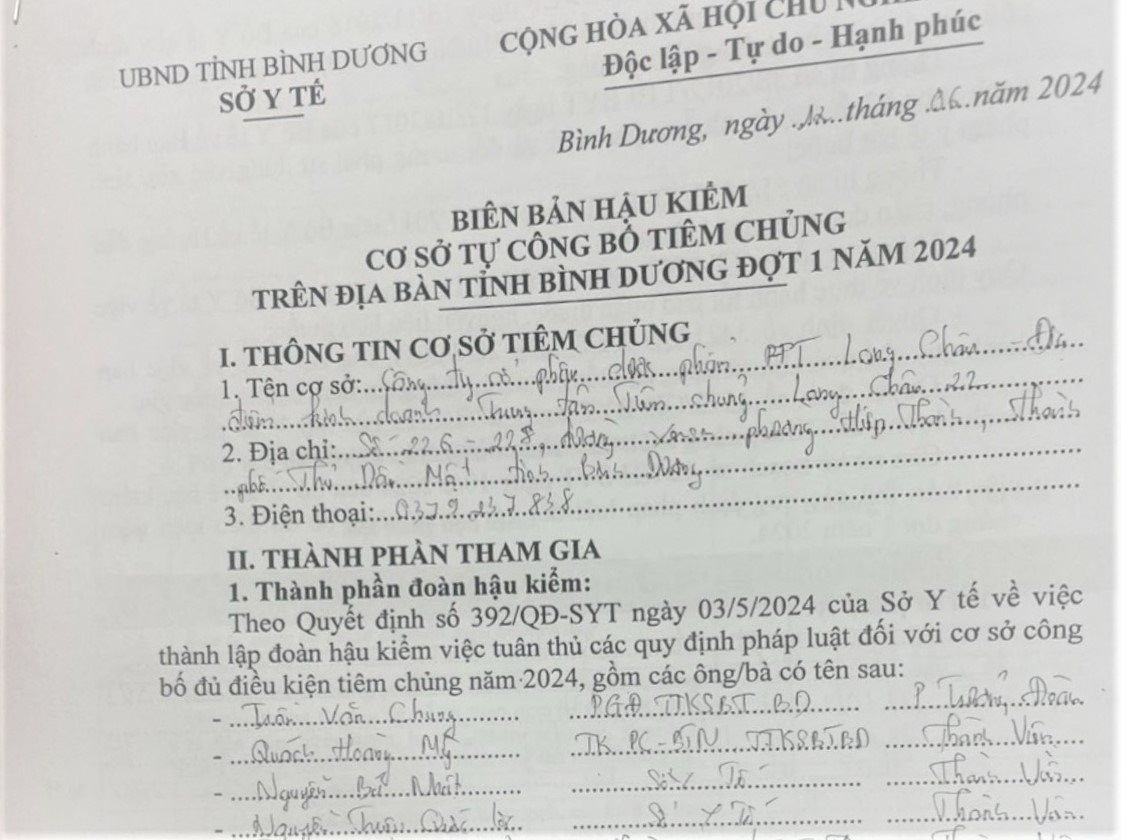 UBND TỈNH BÌNH DƯƠNG
SỞ Y TẾ
CỘNG HÒA XÃ HỘI CHỦ
Độc lập - Tự do - Hạnh phúc
Bình Dương, ngày 12 tháng 06 năm 2024
BIÊN BẢN HẬU KIỂM
CƠ SỞ TỰ CÔNG BỐ TIÊM CHỦNG
TRÊN ĐỊA BÀN TỈNH BÌNH DƯƠNG ĐỢT 1 NĂM 2024
I. THÔNG TIN CƠ SỞ TIÊM CHỦNG
1. Tên cơ sở: Công ty cổ phần dược phẩm FPT Long Châu - Địa
điểm kinh doanh Trung tâm Tiêm chủng Long Châu 22
2. Địa chỉ: Số 226 - 228, đường phường Hiệp Thành, Thành
phố Thủ Dầu Một tỉnh Bình Dương
3. Điện thoại: 0379 237 838
II. THÀNH PHẦN THAM GIA
1. Thành phần đoàn hậu kiểm:
Theo Quyết định số 392/QĐ-SYT ngày 03/5/2024 của Sở Y tế về việc
thành lập đoàn hậu kiểm việc tuân thủ các quy định pháp luật đối với cơ sở công
bố đủ điều kiện tiêm chủng năm 2024, gồm các ông/bà có tên sau:
- Trần Văn Chung PGĐ TTKSBT BD P Trưởng Đoàn
- Quách Hoàng Mỹ TK PC-BTN TTKSBTBD Thành Viên
- Nguyễn Bá Nhất Sở Y Tế Thành Viên
- Nguyễn Sở Y Tế Thành Viên